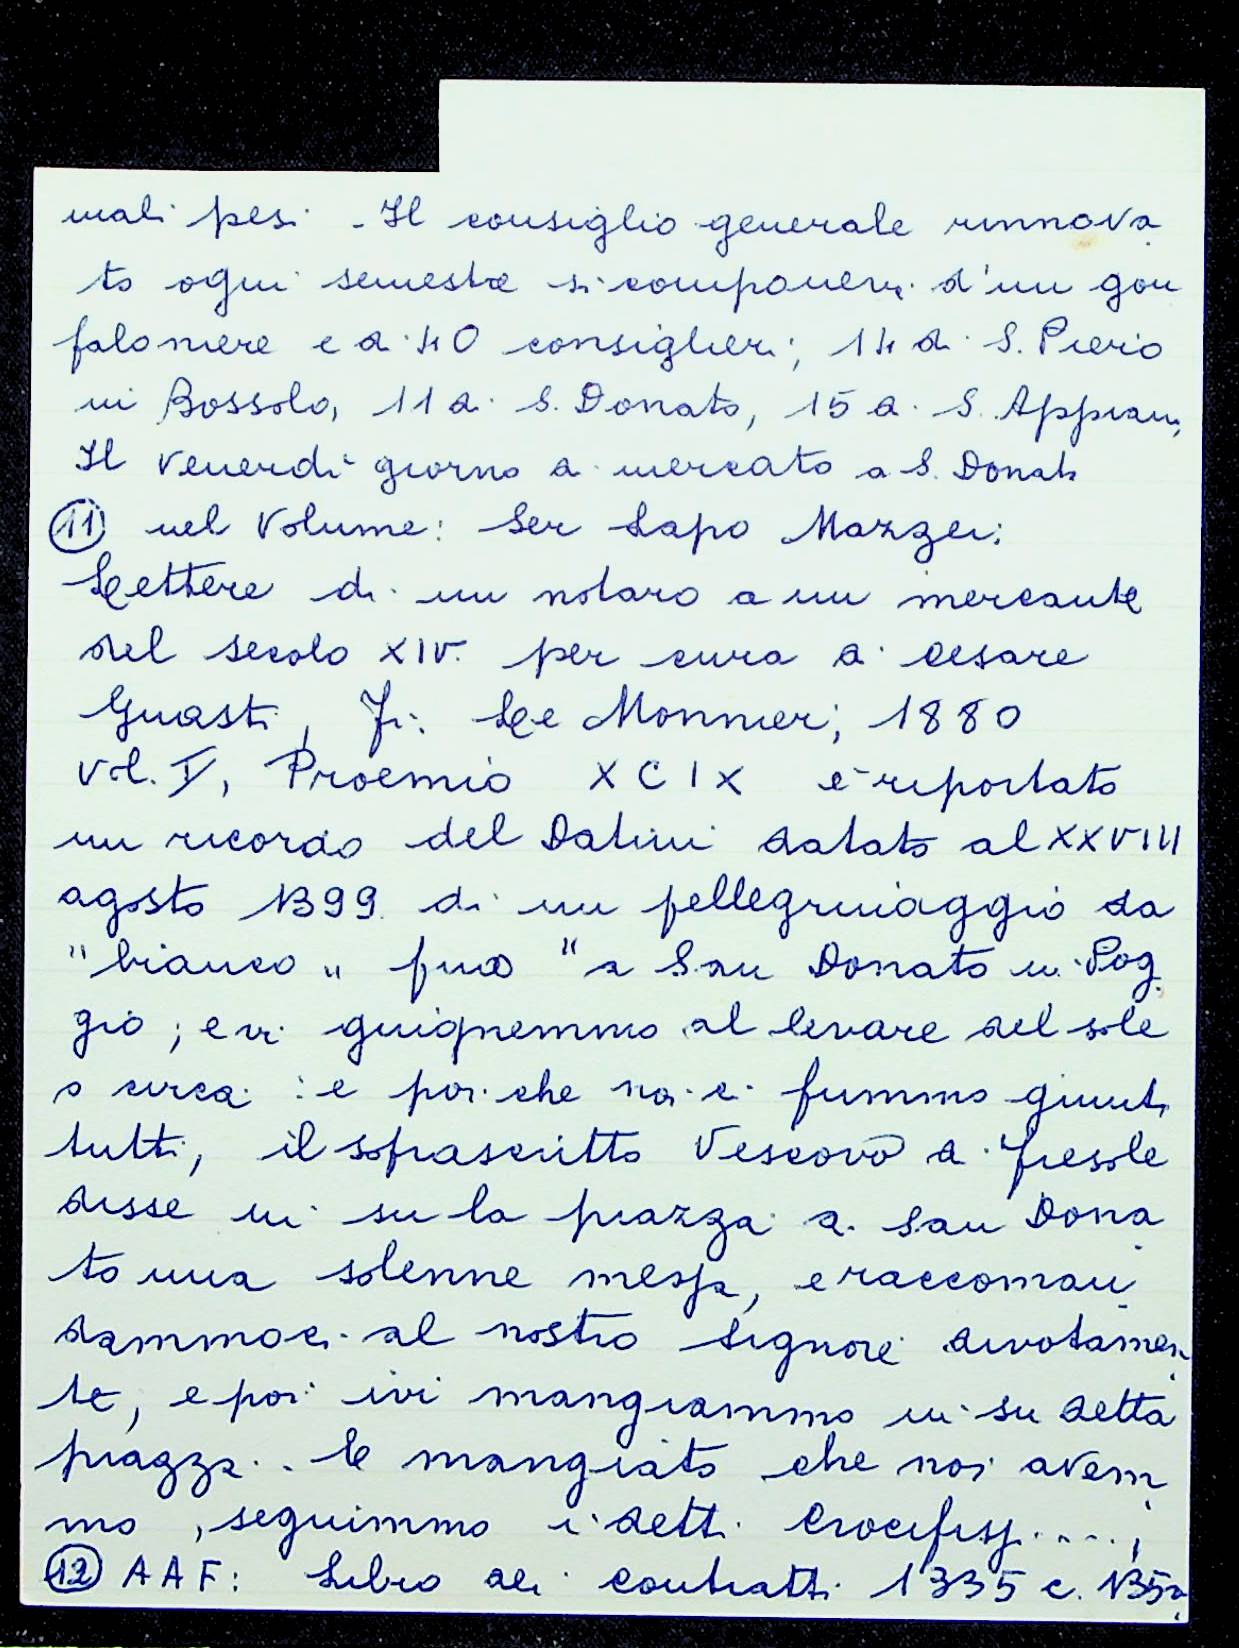 mali pesi - Il consiglio generale rinnova
to ogni semestre si componeva d'un gon
faloniere e di 40 consiglieri; 14 di S. Piero
in Bossolo, 11 di S. Donato, 15 di S. Appiano,
Il venerdì giorno di mercato a S. Donato
(11) nel volume: Ser Lapo Mazzei:
Lettere di un notaro a un mercante
del secolo XIV. per cura di Cesare
Guasti, Fi: Le Monnier; 1880
vol. I, Proemio XCIX è riportato
un ricordo del Datini datato al XXVIII
agosto 1399 di un pellegrinaggio da
"bianco" fino "a San Donato in Pog
gio; e vi giugnemmo al levare del sole
o circa: e poi che noi ci fummo giunti
tutti, il soprascritto Vescovo di Fiesole
disse in su la piazza di San Dona
to una solenne messa, e raccoman
dammoci al nostro Signore divotamen
te, e poi ivi mangiammo in su detta
piazza.. E mangiato che noi avem
mo, seguimmo i detti Crocifissi....;
(12) AAF: Libro dei contratti 1335 c. 135v,